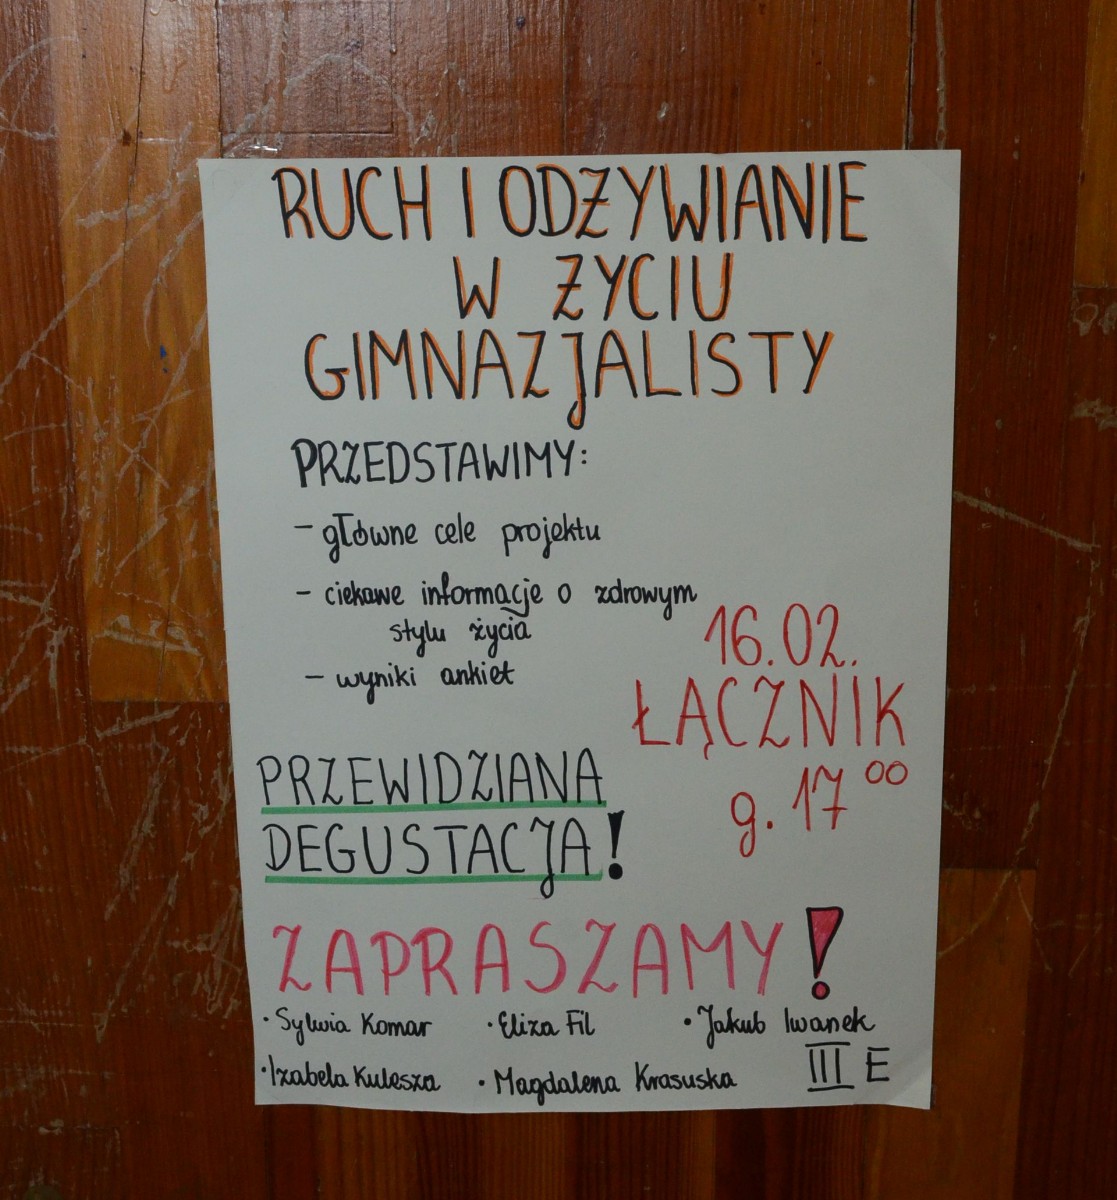 RUCH I ODŻYWIANIE
W ŻYCIU
GIMNAZJALISTY
PRZEDSTAWIMY:
- główne cele projektu
- ciekawe informacje o zdrowym
stylu życia
- wyniki ankiet
16.02.
ŁĄCZNIK
g. 17⁰⁰
PRZEWIDZIANA
DEGUSTACJA!
ZAPRASZAMY!
• Sylwia Komar • Eliza Fil • Jakub Iwanek
• Izabela Kulesza • Magdalena Krasuska III E